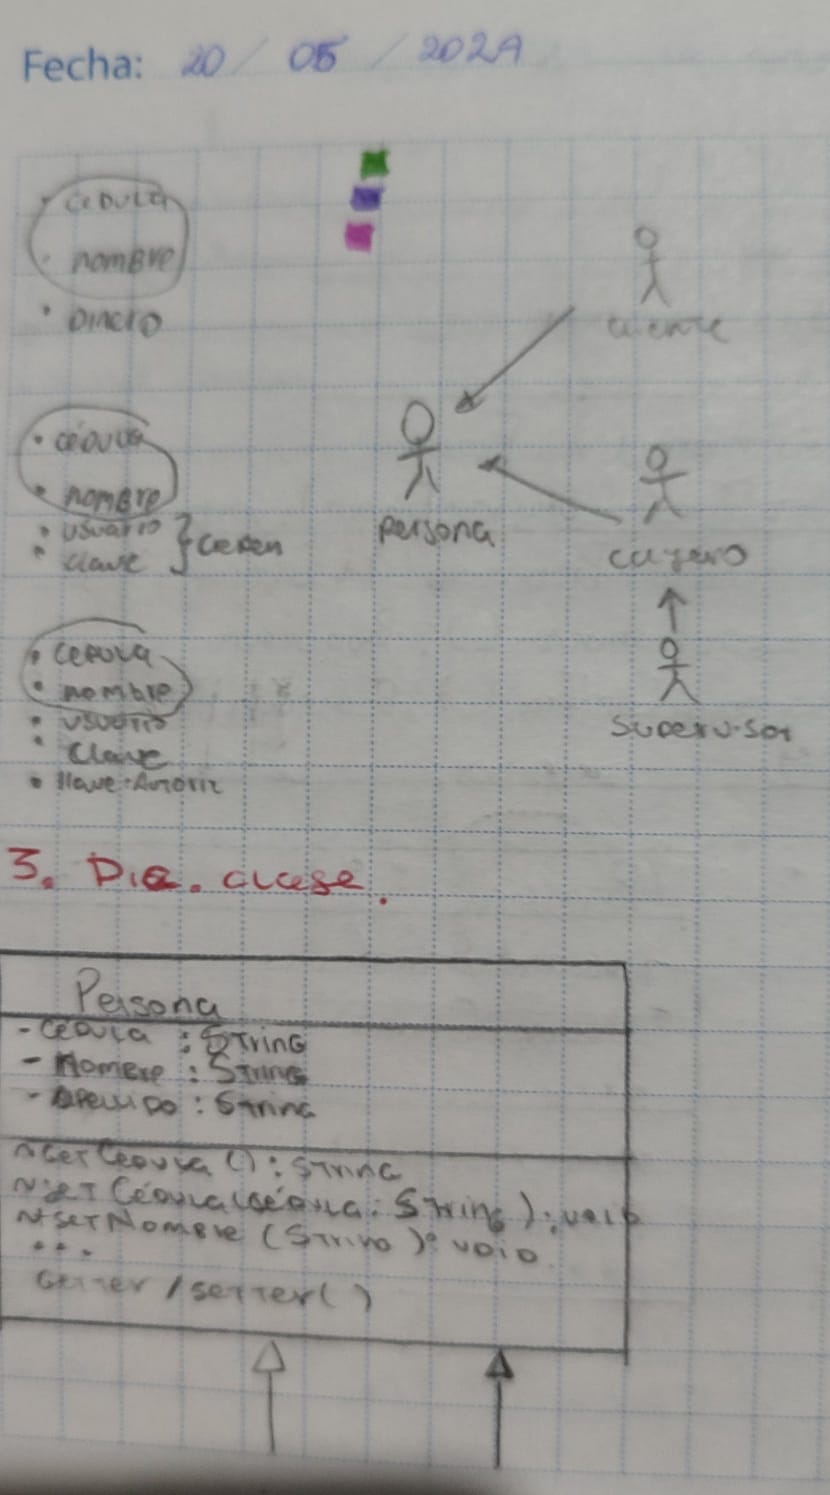 Fecha: 20 / 05 / 2024
• cedula
• nombre
• Dinero
cliente
• cédula
• nombre
• usuario
• clave
} Ceren
persona
cajero
• cedula
• nombre
• usuario
• Clave
• llave-Autoriz
supervisor
3. Dia. clase.
Persona
- Cedula : String
- Nombre : String
- Apellido : String
~ getCedula () : String
~ set Cédula (cédula : String ) : void
~ setNombre (String ) : void
• • •
Getter / setter( )